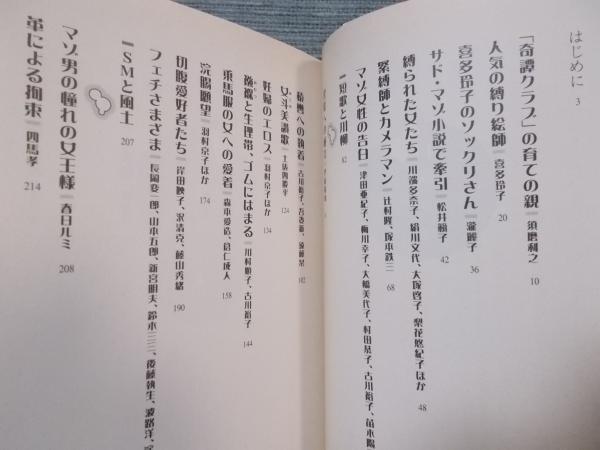 はじめに 3
「奇譚クラブ」の育ての親 須磨利之 10
人気の縛り絵師 喜多玲子 20
喜多玲子のソックリさん 瀧麗子 36
サド・マゾ小説で牽引 松井籟子 42
縛られた女たち 川端多奈子、絹川文代、大塚啓子、梨花悠紀子ほか 48
緊縛師とカメラマン 辻村隆、塚本鉄三 68
マゾ女性の告白 津田亜紀子、梅川幸子、大橋美代子、村田恭子、古川裕子、苗木陽
短歌と川柳 82
女斗美讃歌 土俵四股平 124
妊婦のエロス 羽村京子ほか 134
襁褓と生理帯、ゴムにはまる 川村順子、古川裕子 144
乗馬服の女への愛着 森本愛造、倉仁成人 158
浣腸願望 羽村京子ほか 174
切腹愛好者たち 岸田妙子、沢清克、藤山秀緒 190
フェチさまざま 長岡憂一郎、山本五郎、新宮明夫、鈴木三三、後藤執生、波路洋、
SMと風土 207
マゾ男の憧れの女王様 春日ルミ 208
革による拘束 四馬孝 214